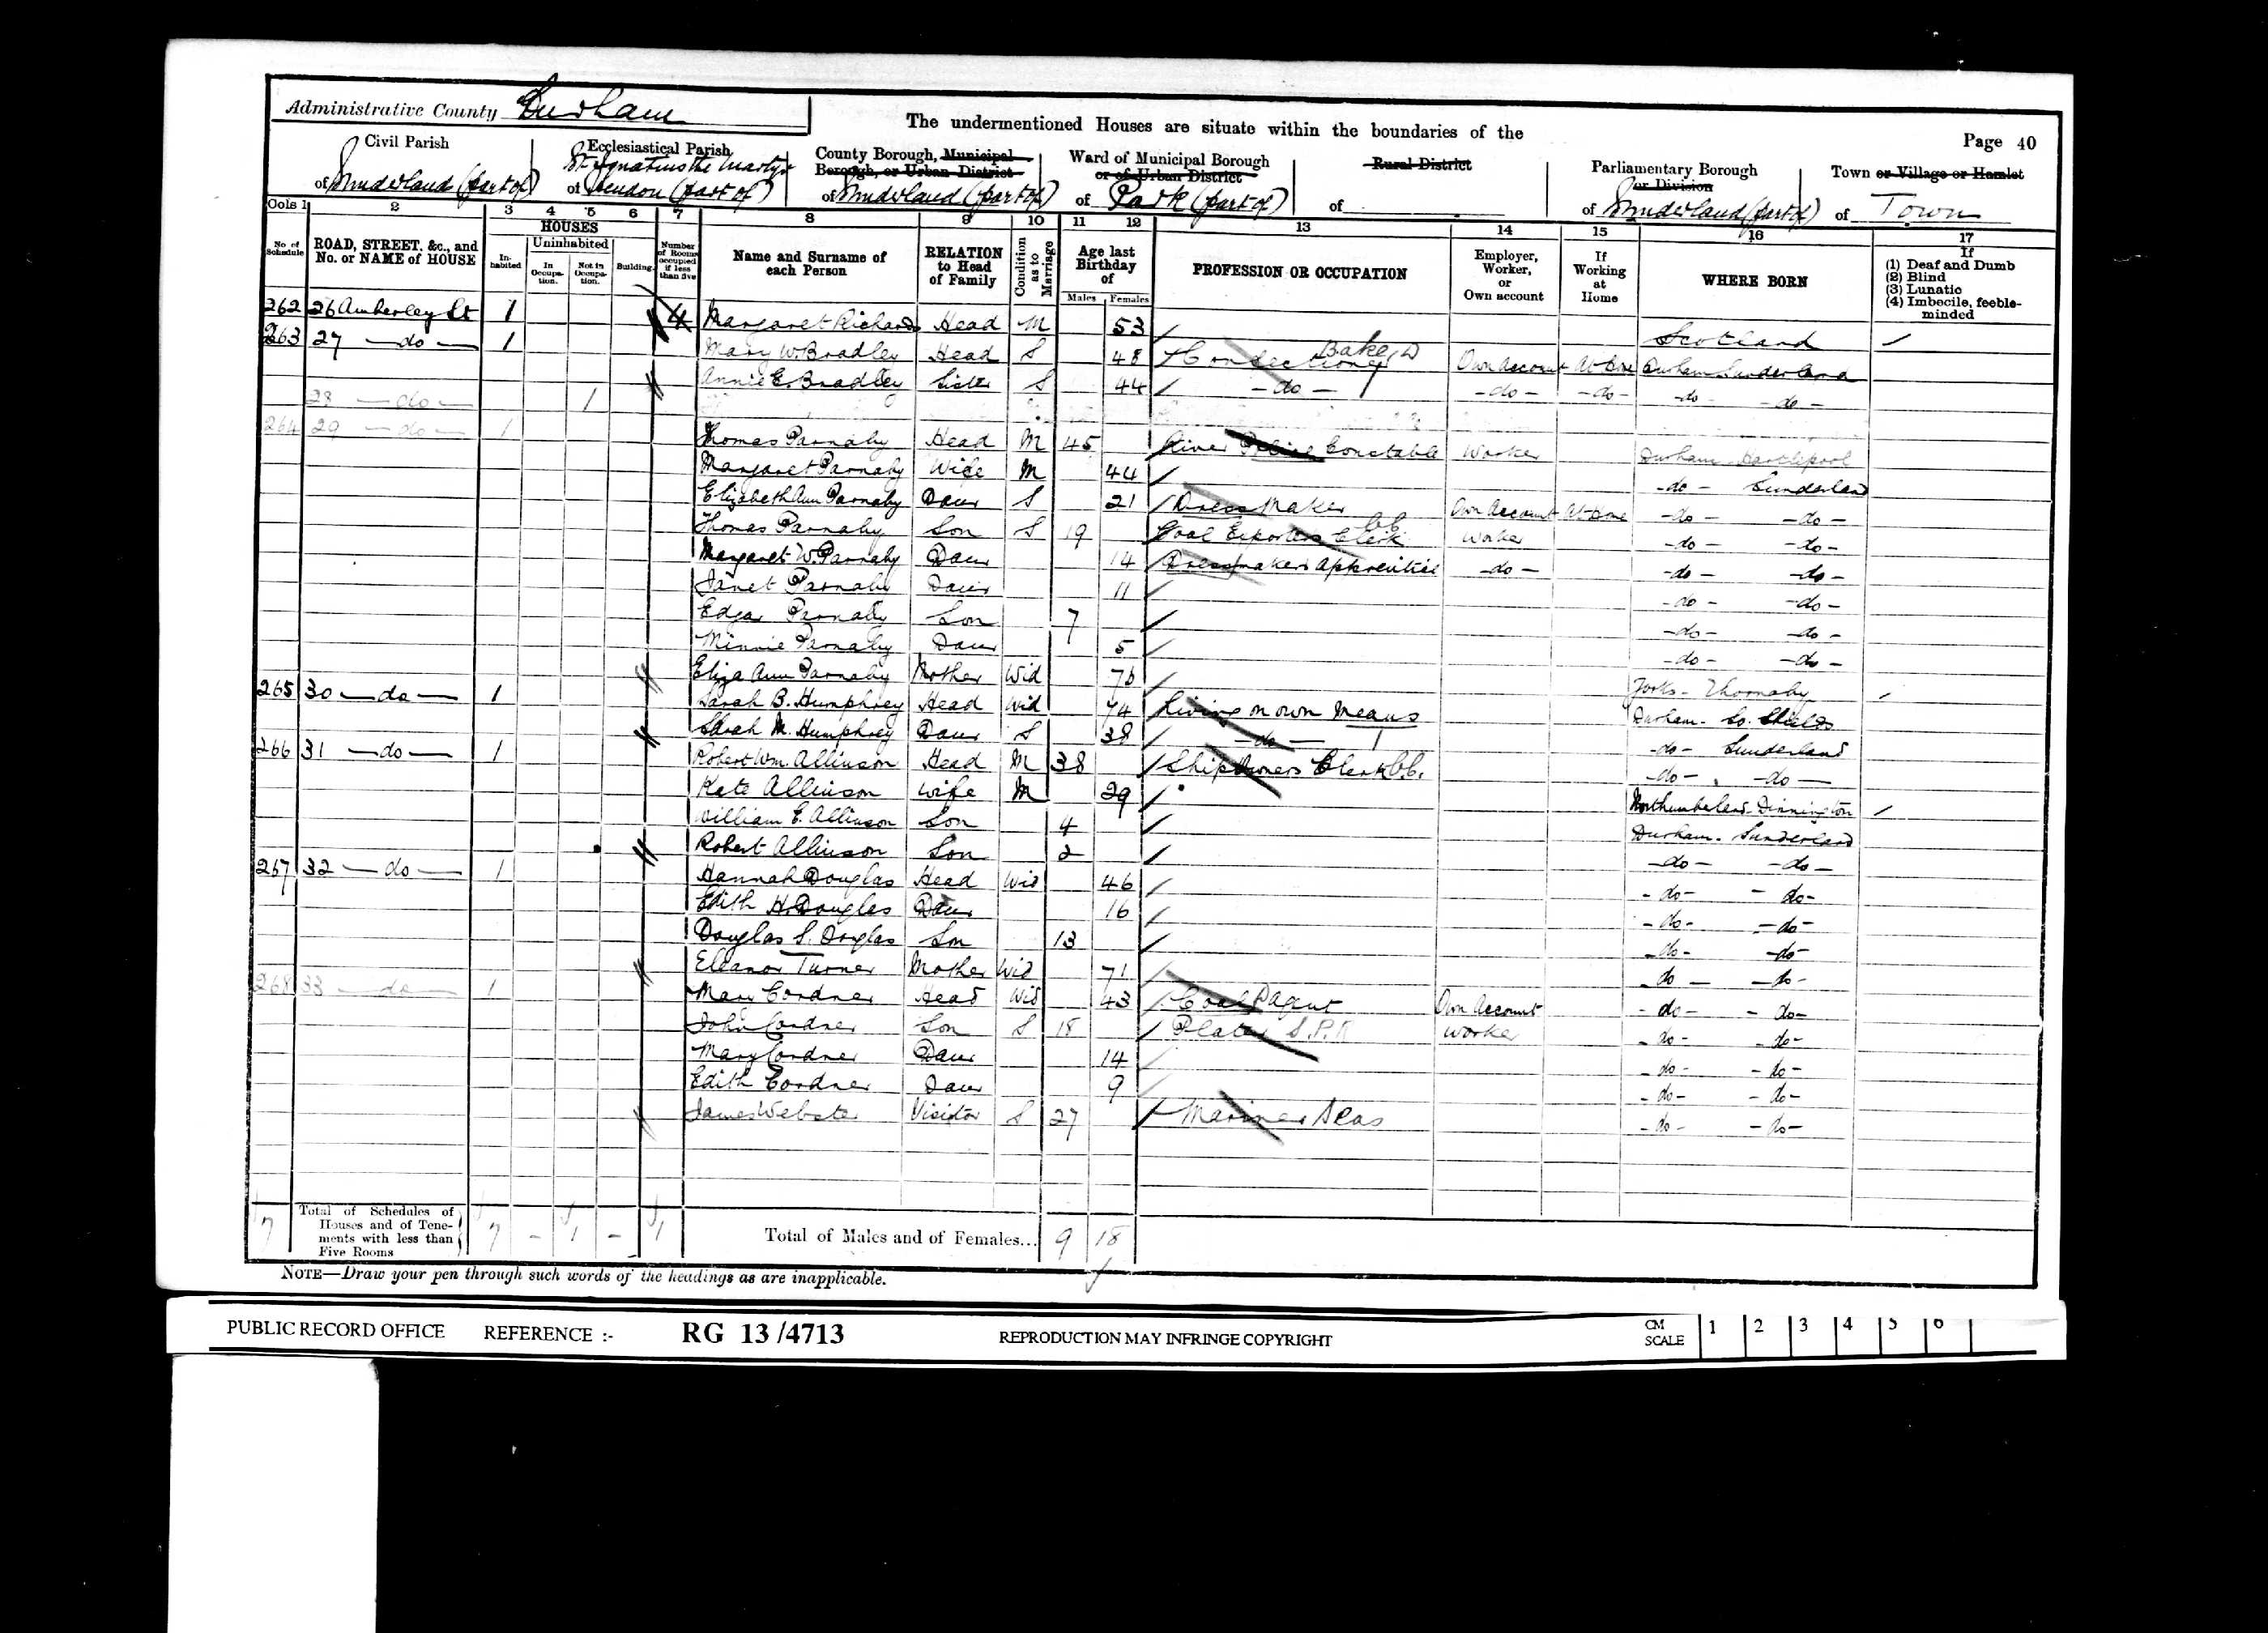 Administrative County Durham
The undermentioned Houses are situate within the boundaries of the
Page 40
Civil Parish
of Sunderland (part of)
Ecclesiastical Parish
St Ignatius the Martyr
of Hendon (part of)
County Borough, Municipal
Borough, or Urban District
of Sunderland (part of)
Ward of Municipal Borough
or of Urban District
of Park (part of)
Rural District
of
Parliamentary Borough
or Division
of Sunderland (part of)
Town or Village or Hamlet
of Town
Cols 1 2 3 4 5 6 7 8 9 10 11 12 13 14 15 16 17
No of Schedule
ROAD, STREET, &c., and No. or NAME of HOUSE
HOUSES
Inhabited
Uninhabited
In Occupation.
Not in Occupation.
Building.
Number of Rooms occupied if less than five
Name and Surname of each Person
RELATION to Head of Family
Condition as to Marriage
Age last Birthday of
Males Females
PROFESSION OR OCCUPATION
Employer, Worker, or Own account
If Working at Home
WHERE BORN
If
(1) Deaf and Dumb
(2) Blind
(3) Lunatic
(4) Imbecile, feeble-minded
262 26 Amberley St 1 4 Margaret Richards Head M 53 Scotland
263 27 -do- 1 Mary W. Bradley Head S 48 Confectioner Baker Own Account At Home Durham Sunderland
Annie E. Bradley Sister S 44 -do- -do- -do- -do- -do-
28 -do- 1
264 29 -do- 1 Thomas Parnaby Head M 45 River Police Constable Worker Durham Hartlepool
Margaret Parnaby Wife M 44 -do- Sunderland
Elizabeth Ann Parnaby Daur S 21 Dress Maker Own Account At Home -do- -do-
Thomas Parnaby Son S 19 Coal Exporters Clerk Worker -do- -do-
Margaret W. Parnaby Daur 14 Dressmakers Apprentice -do- -do- -do-
Janet Parnaby Daur 11 -do- -do-
Edgar Parnaby Son 7 -do- -do-
Minnie Parnaby Daur 5 -do- -do-
Eliza Ann Parnaby Mother Wid 76 Yorks- Thornaby
265 30 -do- 1 Sarah B. Humphrey Head Wid 74 Living on own Means Durham. So. Shields
Sarah M. Humphrey Daur S 38 -do- -do- Sunderland
266 31 -do- 1 Robert Wm. Allinson Head M 38 Ship Owners Clerk -do- -do-
Kate Allinson Wife M 29 Northumberland Dinnington
William E. Allinson Son 4 Durham. Sunderland
Robert Allinson Son 2 -do- -do-
267 32 -do- 1 Hannah Douglas Head Wid 46 -do- -do-
Edith H. Douglas Daur 16 -do- -do-
Douglas S. Douglas Son 13 -do- -do-
Eleanor Turner Mother Wid 71 -do- -do-
268 33 -do- 1 Mary Cordner Head Wid 43 Coal Agent Own Account -do- -do-
John Cordner Son S 18 Plater Worker -do- -do-
Mary Cordner Daur 14 -do- -do-
Edith Cordner Daur 9 -do- -do-
James Webster Visitor S 27 Mariner Seas -do- -do-
7 Total of Schedules of Houses and of Tenements with less than Five Rooms 7 - 1 - 1 Total of Males and of Females... 9 18
NOTE—Draw your pen through such words of the headings as are inapplicable.
PUBLIC RECORD OFFICE REFERENCE :- RG 13 /4713 REPRODUCTION MAY INFRINGE COPYRIGHT
CM SCALE 1 2 3 4 5 6